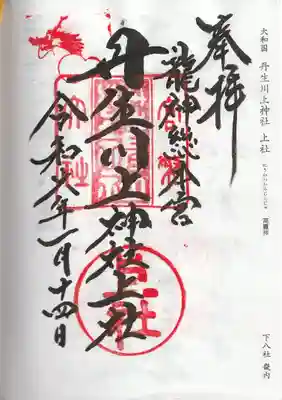 大和国 丹生川上神社 上社
高龗神
下八社 畿内
奉拝
龍神総本宮
丹生川上神社上社
令和六年一月十四日
上社